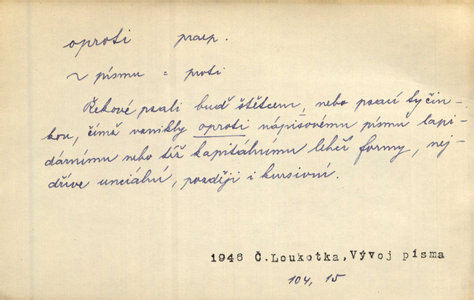 oproti praep.
~ písmu = proti
Řekové psali buď štětcem, nebo psací tyčin-
kou, čímž vznikly oproti nápisovému písmu lapi-
dárnímu nebo též kapitálnímu lehčí formy, nej-
dříve unciální, později i kursivní.
1946 Č.Loukotka,Vývoj písma
104, 15